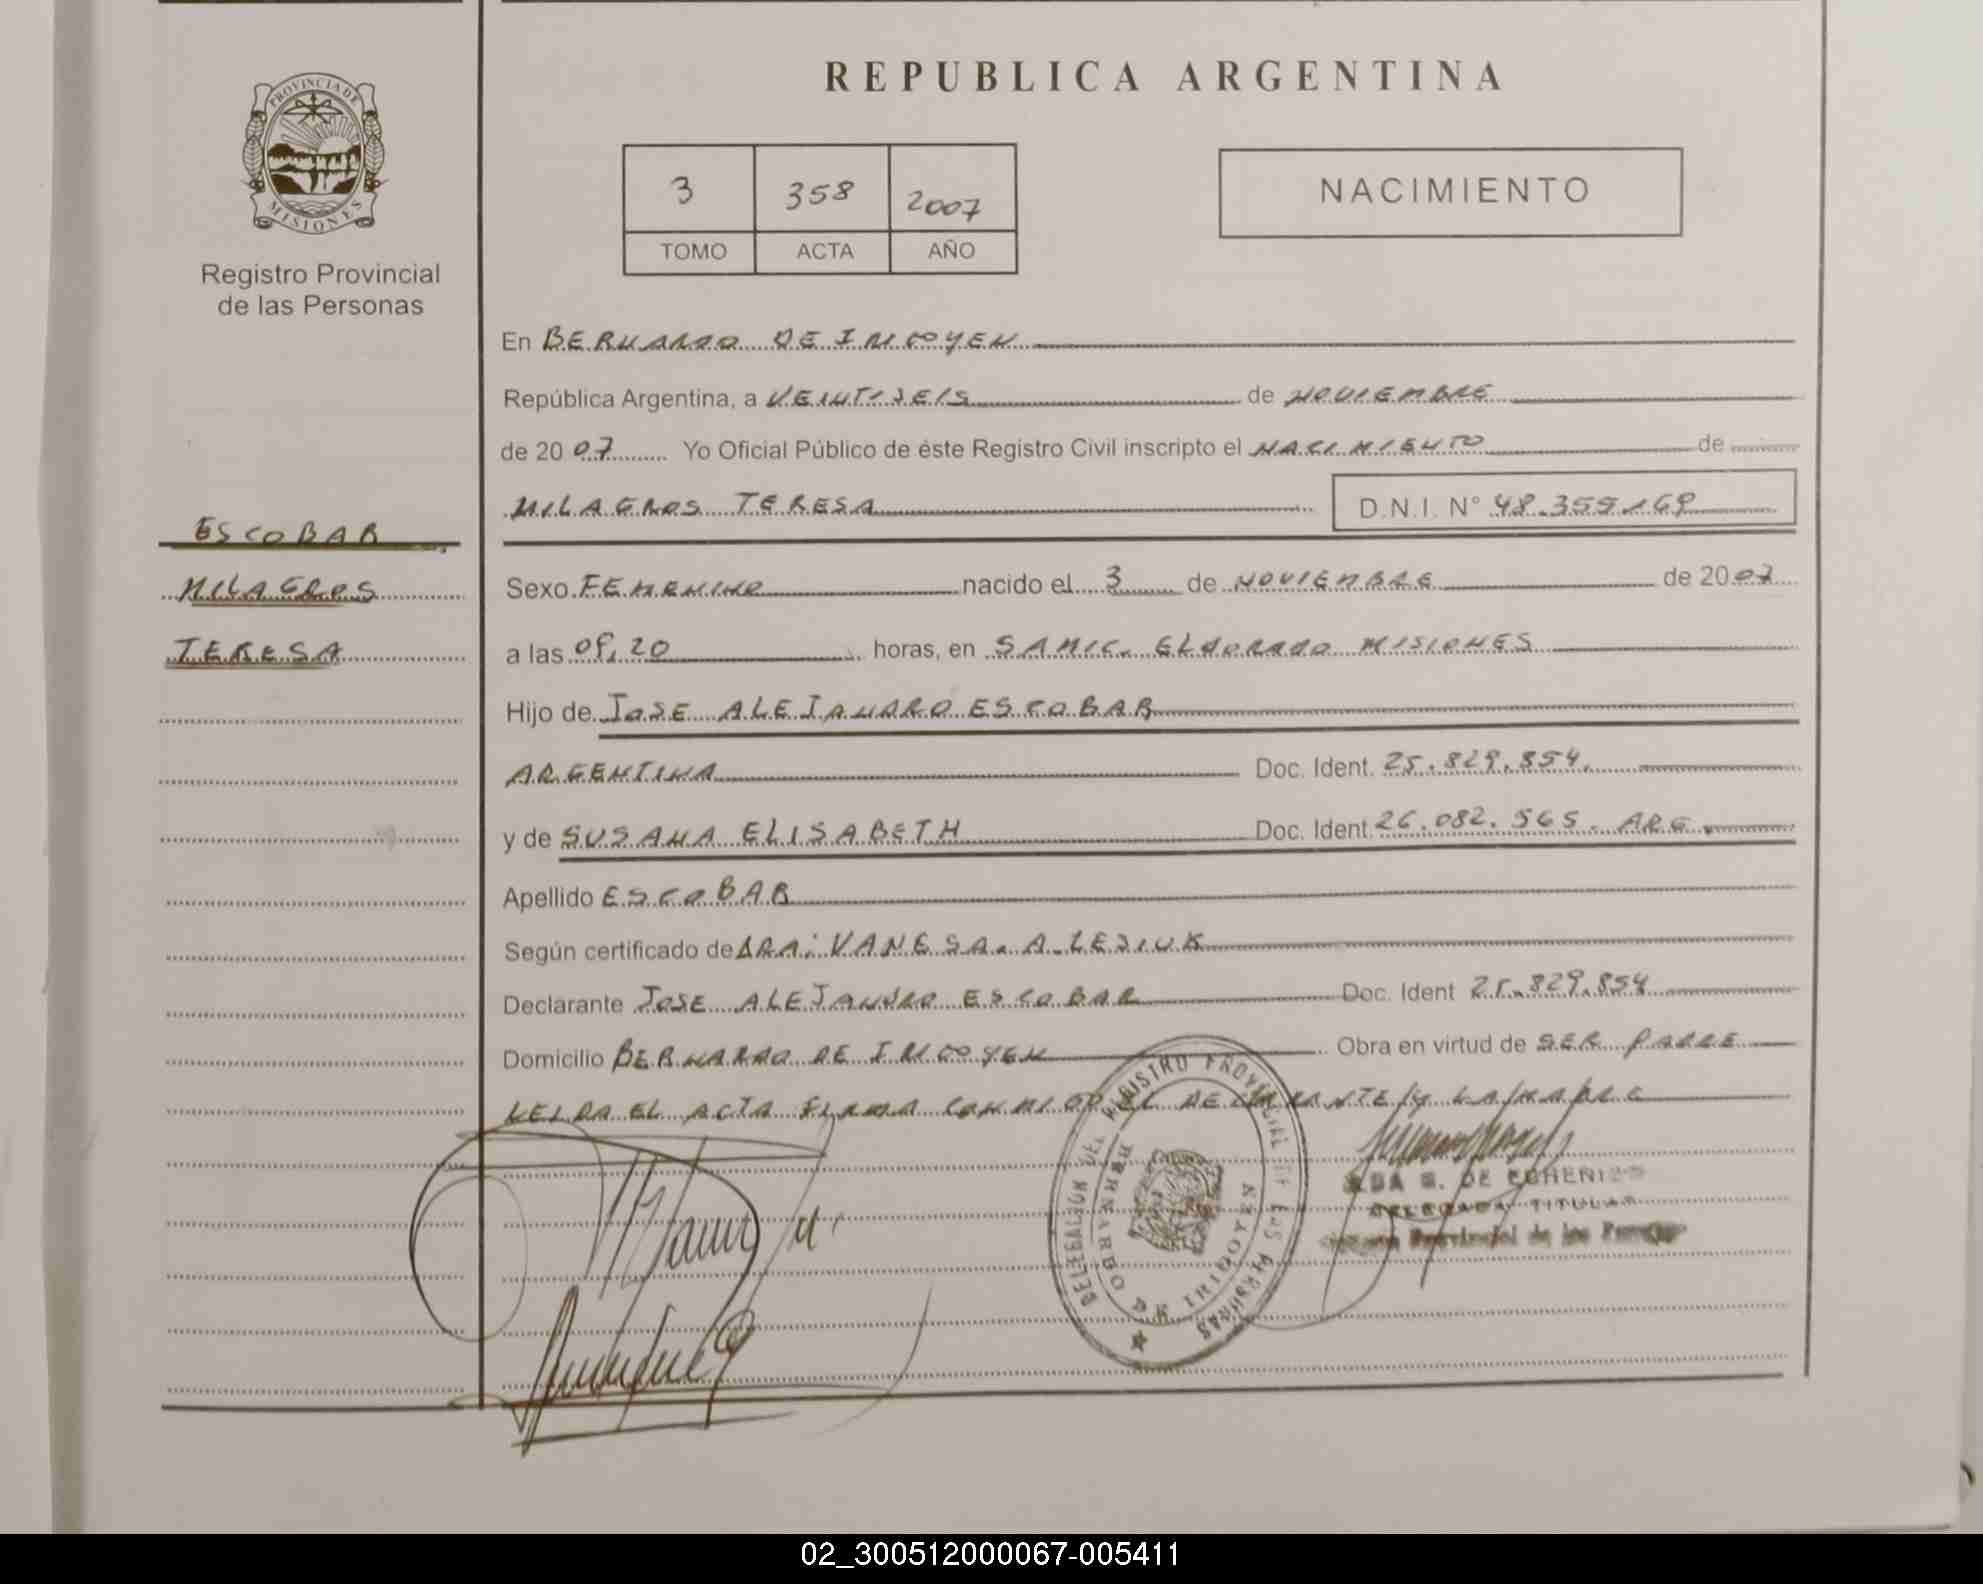 REPUBLICA ARGENTINA
PROVINCIA DE MISIONES
Registro Provincial
de las Personas
3 358 2007
TOMO ACTA AÑO
NACIMIENTO
En BERNARDO DE IRIGOYEN
República Argentina, a VEINTISEIS de NOVIEMBRE
de 2007 Yo Oficial Público de éste Registro Civil inscripto el NACIMIENTO de
MILAGROS TERESA D.N.I. Nº 48.359.169
ESCOBAR
MILAGROS
TERESA
Sexo FEMENINO nacido el 3 de NOVIEMBRE de 2007
a las 09,20 horas, en SAMIC. ELDORADO MISIONES
Hijo de JOSE ALEJANDRO ESCOBAR
ARGENTINA Doc. Ident. 25.829.854.
y de SUSANA ELISABETH Doc. Ident. 26.082.565. ARG.
Apellido ESCOBAR
Según certificado de DRA: VANESA. A. LESIUK
Declarante JOSE ALEJANDRO ESCOBAR Doc. Ident 25.829.854
Domicilio BERNARDO DE IRIGOYEN Obra en virtud de SER PADRE
LEIDA EL ACTA FIRMA CONMIGO EL DECLARANTE/Y LA/MADRE
DELEGACION DEL REGISTRO PROVINCIAL DE LAS PERSONAS
BERNARDO DE IRIGOYEN
DELEGADA TITULAR
Provincial de las Personas
02_300512000067-005411